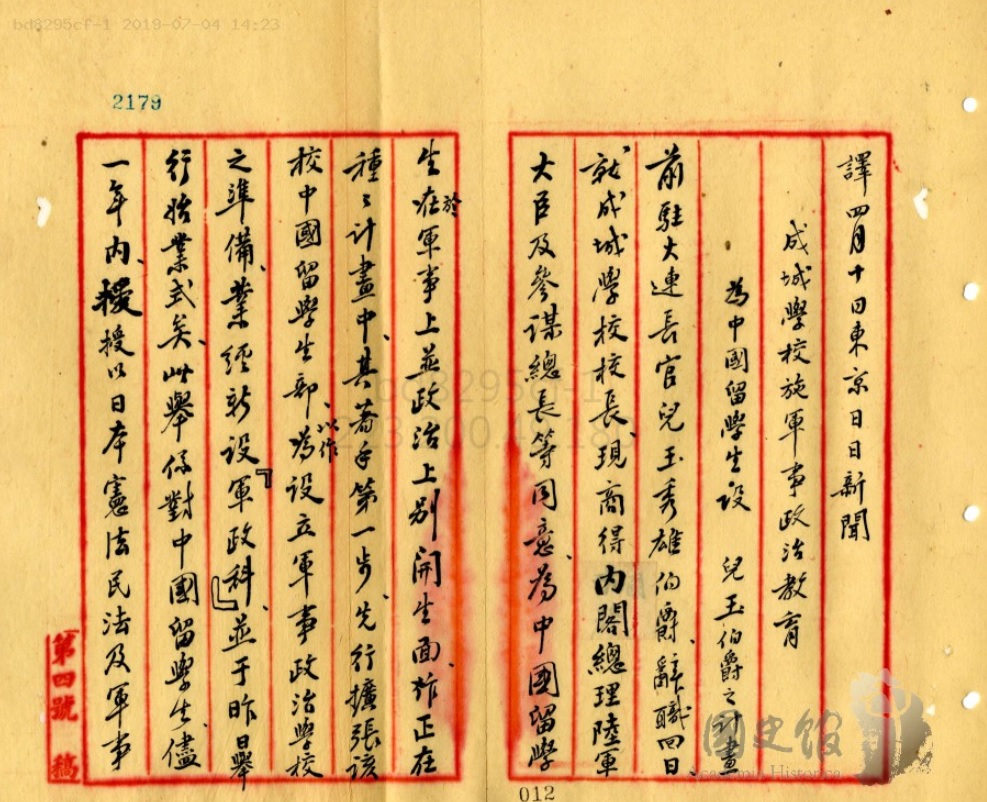 bd8295cf-1 2019-07-04 14:23
2179
譯四月十日東京日日新聞
成城學校施軍事政治教育
為中國留學生設 兒玉伯爵之計畫
前駐大連長官兒玉秀雄伯爵、辭職回日、
就成城學校校長、現商得內閣總理陸軍
大臣及參謀總長等同意、為中國留學
生於在軍事上並政治上別開生面、昨正在
種〻計畫中、其著手第一步、先行擴張該
校中國留學生部、以作為設立軍事政治學校
之準備、業經新設『軍政科』、並于昨日舉
行始業式矣、此舉係對中國留學生、儘
一年內、授以日本憲法民法及軍事
第四號 稿
012
bd8295cf-1
國史館
Academia Historica